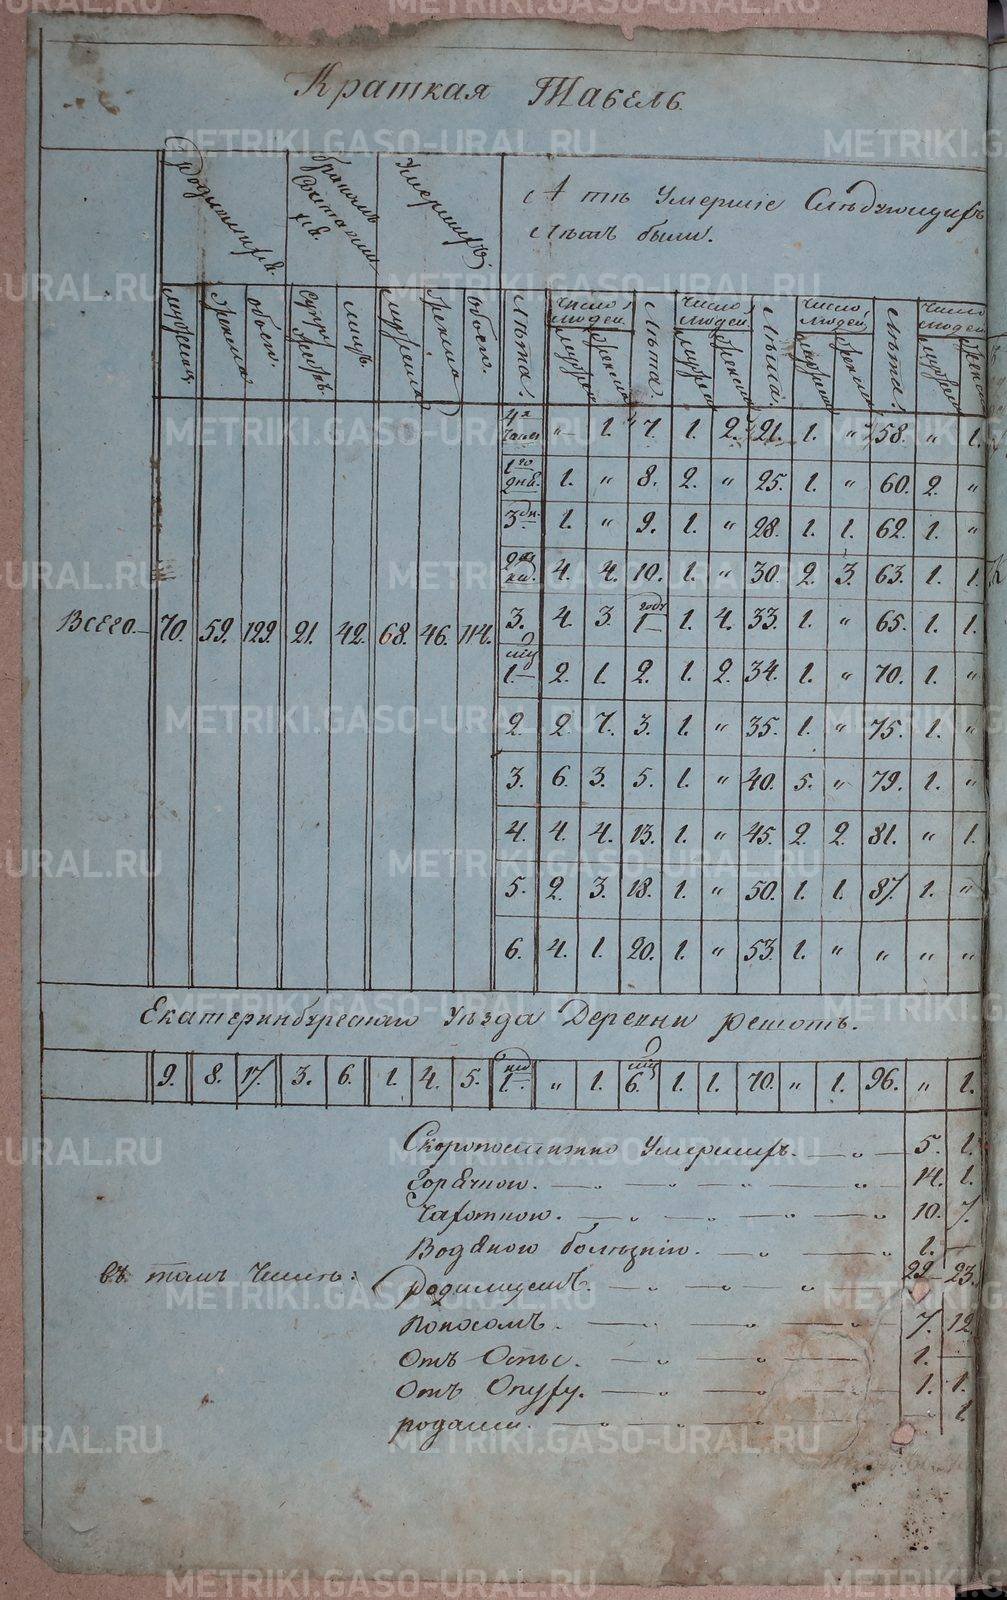 Краткая Табель
Родившихся.
Бракомъ
Умершихъ.
А тѣ Умершіе Слѣдующихъ
Лѣтъ были.
Мужеска Женска обоего. лицъ. Мужеска Женска обоего. Лѣта. Число людей. Лѣта. Число людей. Лѣта. Число людей. Лѣта. Число людей
Всего 70. 59. 129. 21. 42. 68. 46. 114.
" 1. 7. 1. 2. 21. 1. " 58. " 1.
1. " 8. 2. " 25. 1. " 60. 2. "
3 дн. 1. " 9. 1. " 28. 1. 1. 62. 1. "
4. 4. 10. 1. " 30. 2. 3. 63. 1. 1.
3. 4. 3. 1 1. 4. 33. 1. " 65. 1. 1.
1 2. 1. 2. 1. 2. 34. 1. " 70. 1. "
2. 2. 7. 3. 1. " 35. 1. " 75. 1. "
3. 6. 3. 5. 1. " 40. 5. " 79. 1. "
4. 4. 4. 13. 1. " 45. 2. 2. 81. " 1.
5. 2. 3. 18. 1. " 50. 1. 1. 87. 1. "
6. 4. 1. 20. 1. " 53. 1. " " " "
Екатеринбургскаго Уѣзда Деревни решотъ.
9. 8. 17. 3. 6. 1. 4. 5. 1. " 1. 6. 1. 1. 70. " 1. 96. " 1.
Скоропостижно Умершихъ. 5. 1.
Горячкою. 14. 1.
Чахоткою. 10. 7.
Водяною болѣзнію. 1. —
въ томъ Числѣ: родимцемъ. 29 23.
Поносомъ. 7. 12
Отъ Оспы. 1. —
Отъ Опуху. 1. 1.
родами. — 1
METRIKI.GASO-URAL.RU